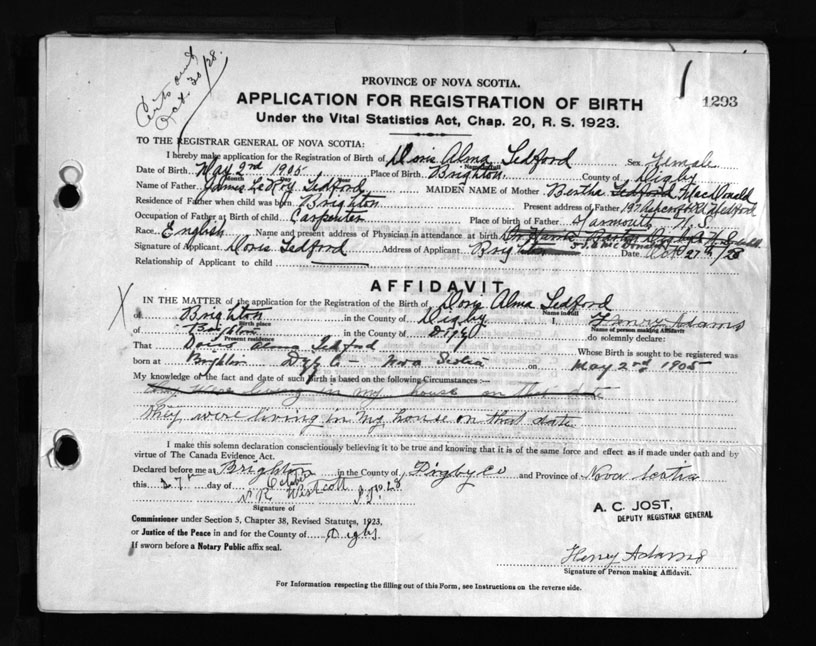 Certs out
Oct. 30/28.
PROVINCE OF NOVA SCOTIA.
1293
APPLICATION FOR REGISTRATION OF BIRTH
Under the Vital Statistics Act, Chap. 20, R. S. 1923.
TO THE REGISTRAR GENERAL OF NOVA SCOTIA:
I hereby make application for the Registration of Birth of Doris Alma Ledford Sex Female
Name in full
Date of Birth May 2nd 1905 Place of Birth Brighton, County of Digby
Month Day
Name of Father James LeRoy Ledford MAIDEN NAME of Mother Bertha Ledford MacDonald
Residence of Father when child was born Brighton Present address of Father 197 Medford
Occupation of Father at Birth of child Carpenter Place of birth of Father Yarmouth N.S.
Race English Name and present address of Physician in attendance at birth
Signature of Applicant Doris Ledford Address of Applicant Brighton Date Oct 27th/28
Relationship of Applicant to child
AFFIDAVIT
IN THE MATTER of the application for the Registration of the Birth of Doris Alma Ledford
Name in full
of Brighton in the County of Digby I, Henry Adams
Birth place Name of person making Affidavit
of Brighton in the County of Digby do solemnly declare:
Present residence
That Doris Alma Ledford Whose Birth is sought to be registered was
born at Brighton Digby Co - Nova Scotia on May 2nd 1905
My knowledge of the fact and date of such Birth is based on the following Circumstances :—
they were living in my house on that date
they were living in my house on that date
I make this solemn declaration conscientiously believing it to be true and knowing that it is of the same force and effect as if made under oath and by
virtue of The Canada Evidence Act.
Declared before me at Brighton in the County of Digby Co and Province of Nova Scotia
this 27 day of October
V R Westcott J.P.
Signature of
A. C. JOST,
DEPUTY REGISTRAR GENERAL
Commissioner under Section 5, Chapter 38, Revised Statutes, 1923,
or Justice of the Peace in and for the County of Digby
If sworn before a Notary Public affix seal.
Henry Adams
Signature of Person making Affidavit.
For Information respecting the filling out of this Form, see Instructions on the reverse side.